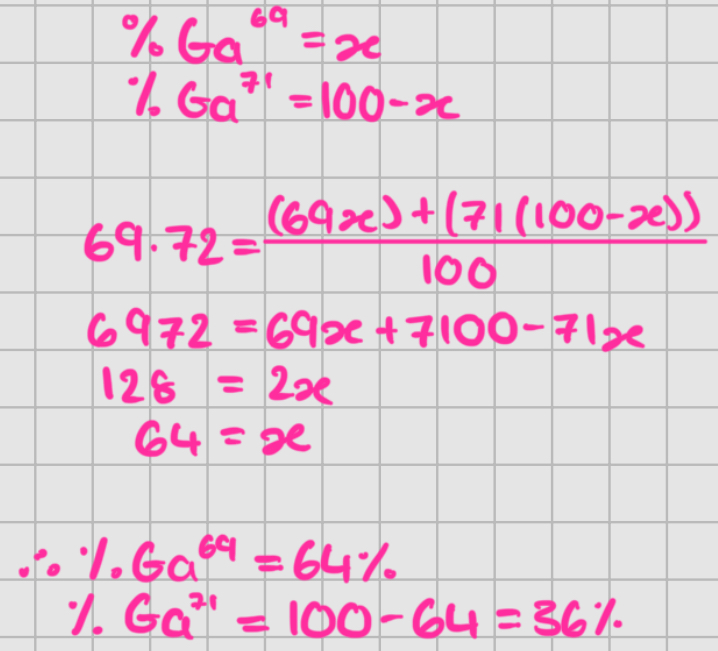 % Ga⁶⁹ = x
% Ga⁷¹ = 100 - x
69.72 = ((69x) + (71(100-x))) / 100
6972 = 69x + 7100 - 71x
128 = 2x
64 = x
∴ % Ga⁶⁹ = 64%
% Ga⁷¹ = 100 - 64 = 36%